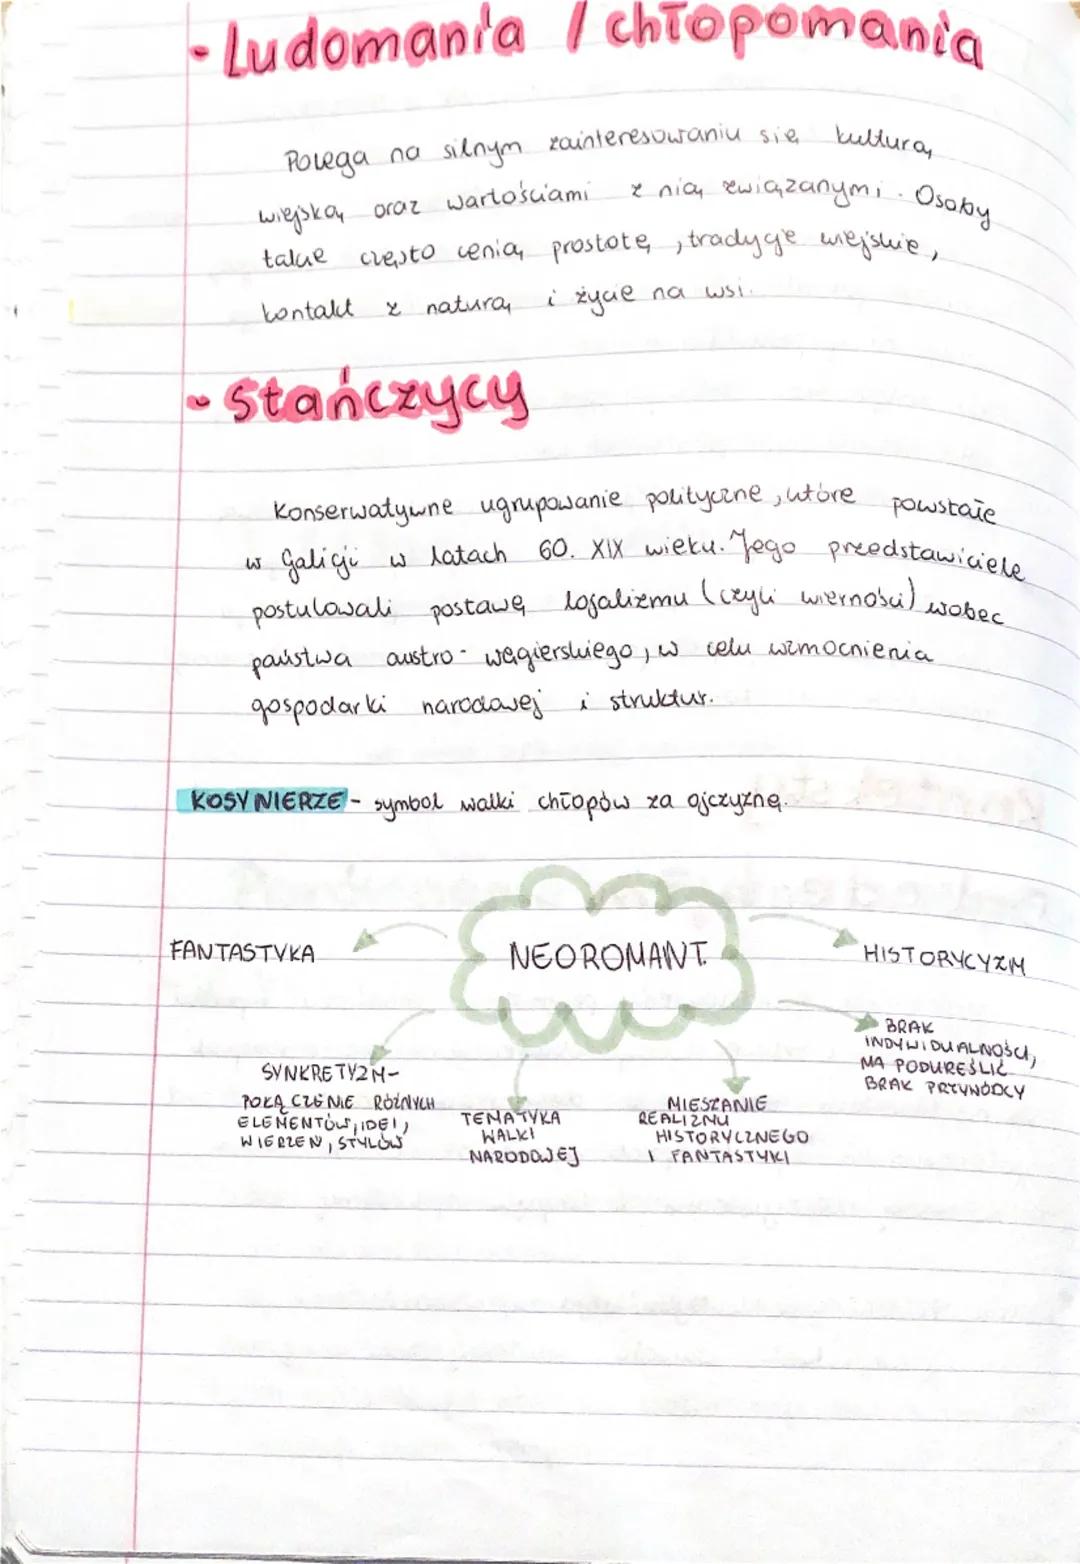 - Ludomania / chłopomania
Polega na silnym zainteresowaniu się kulturą
wiejską oraz wartościami z nią związanymi. Osoby
takie często cenią prostotę, tradycje wiejskie,
kontakt z naturą i życie na wsi.
- Stańczycy
Konserwatywne ugrupowanie polityczne, które powstałe
w Galicji w latach 60. XIX wieku. Jego przedstawiciele
postulowali postawę lojalizmu (czyli wierności) wobec
państwa austro-węgierskiego, w celu wzmocnienia
gospodarki narodowej i struktur.
KOSYNIERZE - symbol walki chłopów za ojczyznę.
NEOROMANT.
FANTASTYKA
HISTORYCYZM
BRAK
INDYWIDUALNOŚCI,
MA PODKREŚLIĆ
BRAK PRZYWÓDCY
SYNKRETYZM-
POŁĄCZENIE RÓŻNYCH
ELEMENTÓW, IDEI,
WIERZEŃ, STYLÓW
TEMATYKA
WALKI
NARODOWEJ
MIESZANIE
REALIZMU
HISTORYCZNEGO
I FANTASTYKI